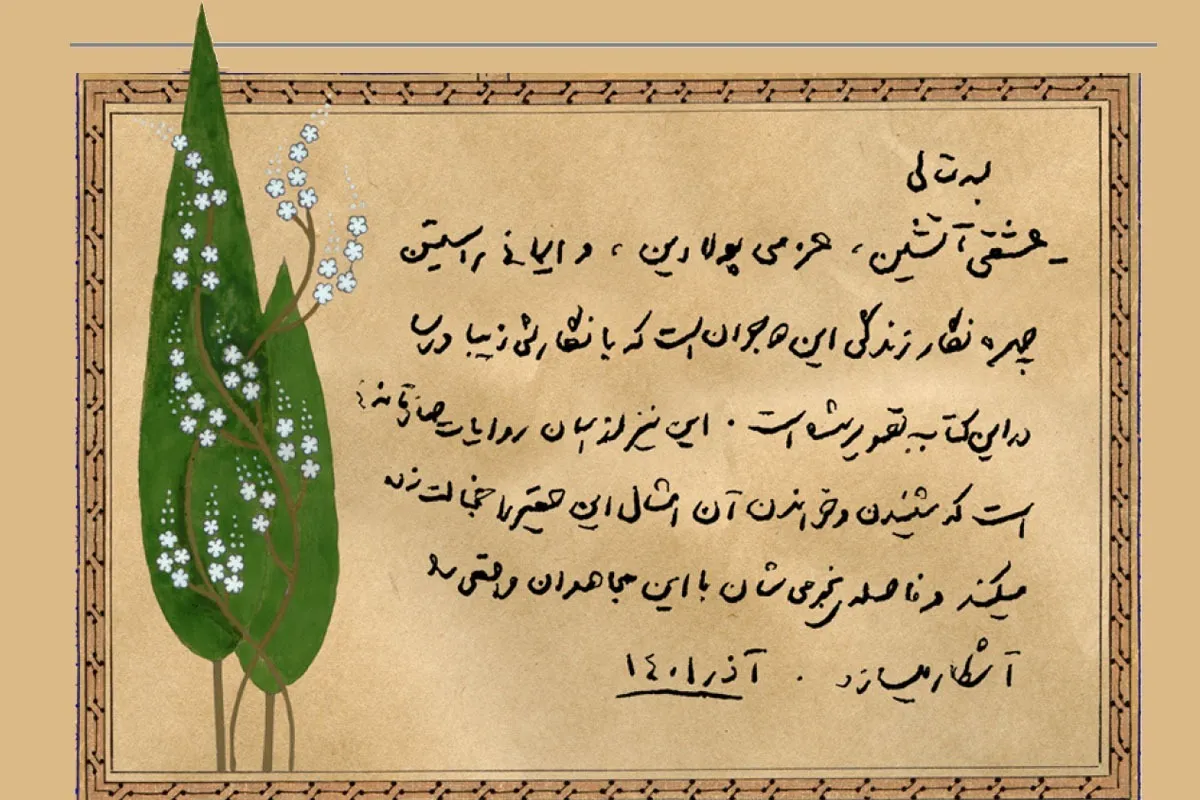 بسمه تعالی
- عشقی آتشین، عزمی پولادین، و ایمانی راستین
چهره نگار زندگی این جوان است که با نگارشی زیبا و رسا
در این کتاب به تصویر شده است. این نیز از میان روایات صادقانه‌ای
است که شنیدن و خواندن آن امثال این حقیر را خجالت زده
میکند و فاصله نجومی شان با این مجاهدان واقعی را
آشکار میسازد. آذر ۱۴۰۱